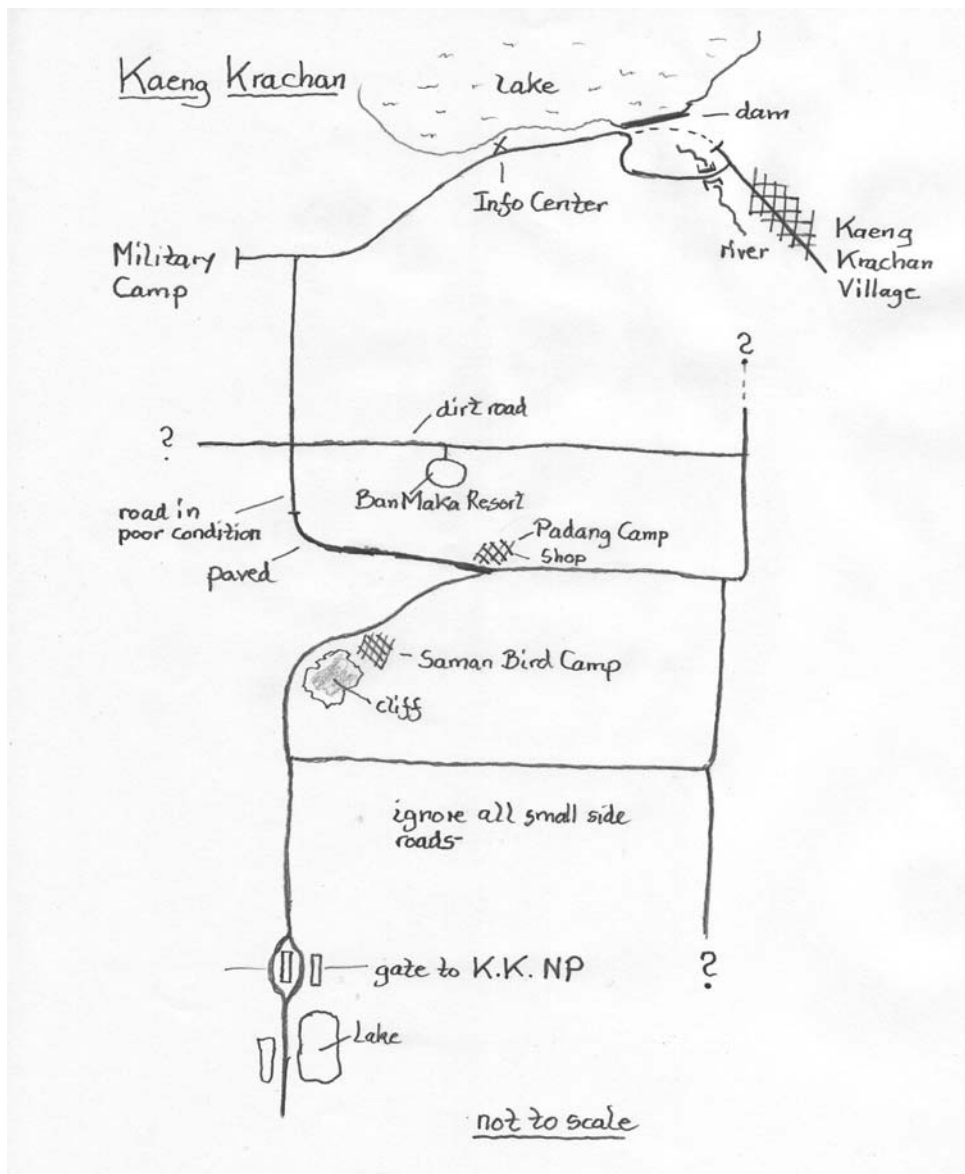 Kaeng Krachan
Lake
dam
Info Center
river
Kaeng
Krachan
Village
Military
Camp
?
dirt road
?
BanMaka Resort
road in
poor condition
Padang Camp
Shop
paved
Saman Bird Camp
cliff
ignore all small side
roads-
gate to K.K. NP
?
Lake
not to scale